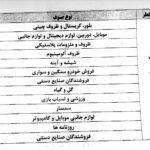 نوع صنف
بلور، کریستال و ظروف چینی
موبایل، دوربین، لوازم دیجیتال و لوازم جانبی
ظروف و ملزومات پلاستیکی
ظروف آلومینیوم
شیشه و آینه
فروش خودرو سنگین و سواری
فروشندگان صنایع دستی
گل و گیاه
ورزشی و اسباب بازی
سمسار
لوازم جانبی موبایل و کامپیوتر
روزنامه ها
فروشندگان صنایع دستی